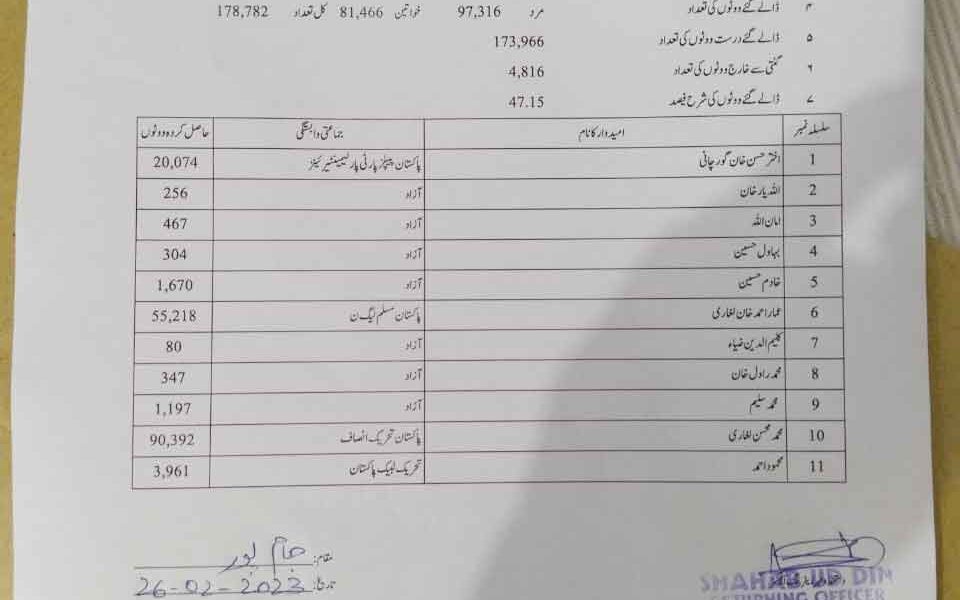 ۴ ڈالے گئے ووٹوں کی تعداد مرد 97,316 خواتین 81,466 کل تعداد 178,782
۵ ڈالے گئے درست ووٹوں کی تعداد 173,966
۶ گنتی سے خارج ووٹوں کی تعداد 4,816
۷ ڈالے گئے ووٹوں کی شرح فیصد 47.15
سلسلہ نمبر امیدوار کا نام جماعتی وابستگی حاصل کردہ ووٹوں
1 اختر حسن خان گورچانی پاکستان پیپلز پارٹی پارلیمینٹیرینز 20,074
2 اللہ یار خان آزاد 256
3 امان اللہ آزاد 467
4 بہاول حسین آزاد 304
5 خادم حسین آزاد 1,670
6 عمار احمد خان لغاری پاکستان مسلم لیگ ن 55,218
7 کلیم الدین ضیاء آزاد 80
8 محمد راول خان آزاد 347
9 محمد سلیم آزاد 1,197
10 محمد محسن لغاری پاکستان تحریک انصاف 90,392
11 محمود احمد تحریک لبیک پاکستان 3,961
مقام: جام پور
تاریخ: 26-02-2023
SHAHAB UD DIN
RETURNING OFFICER